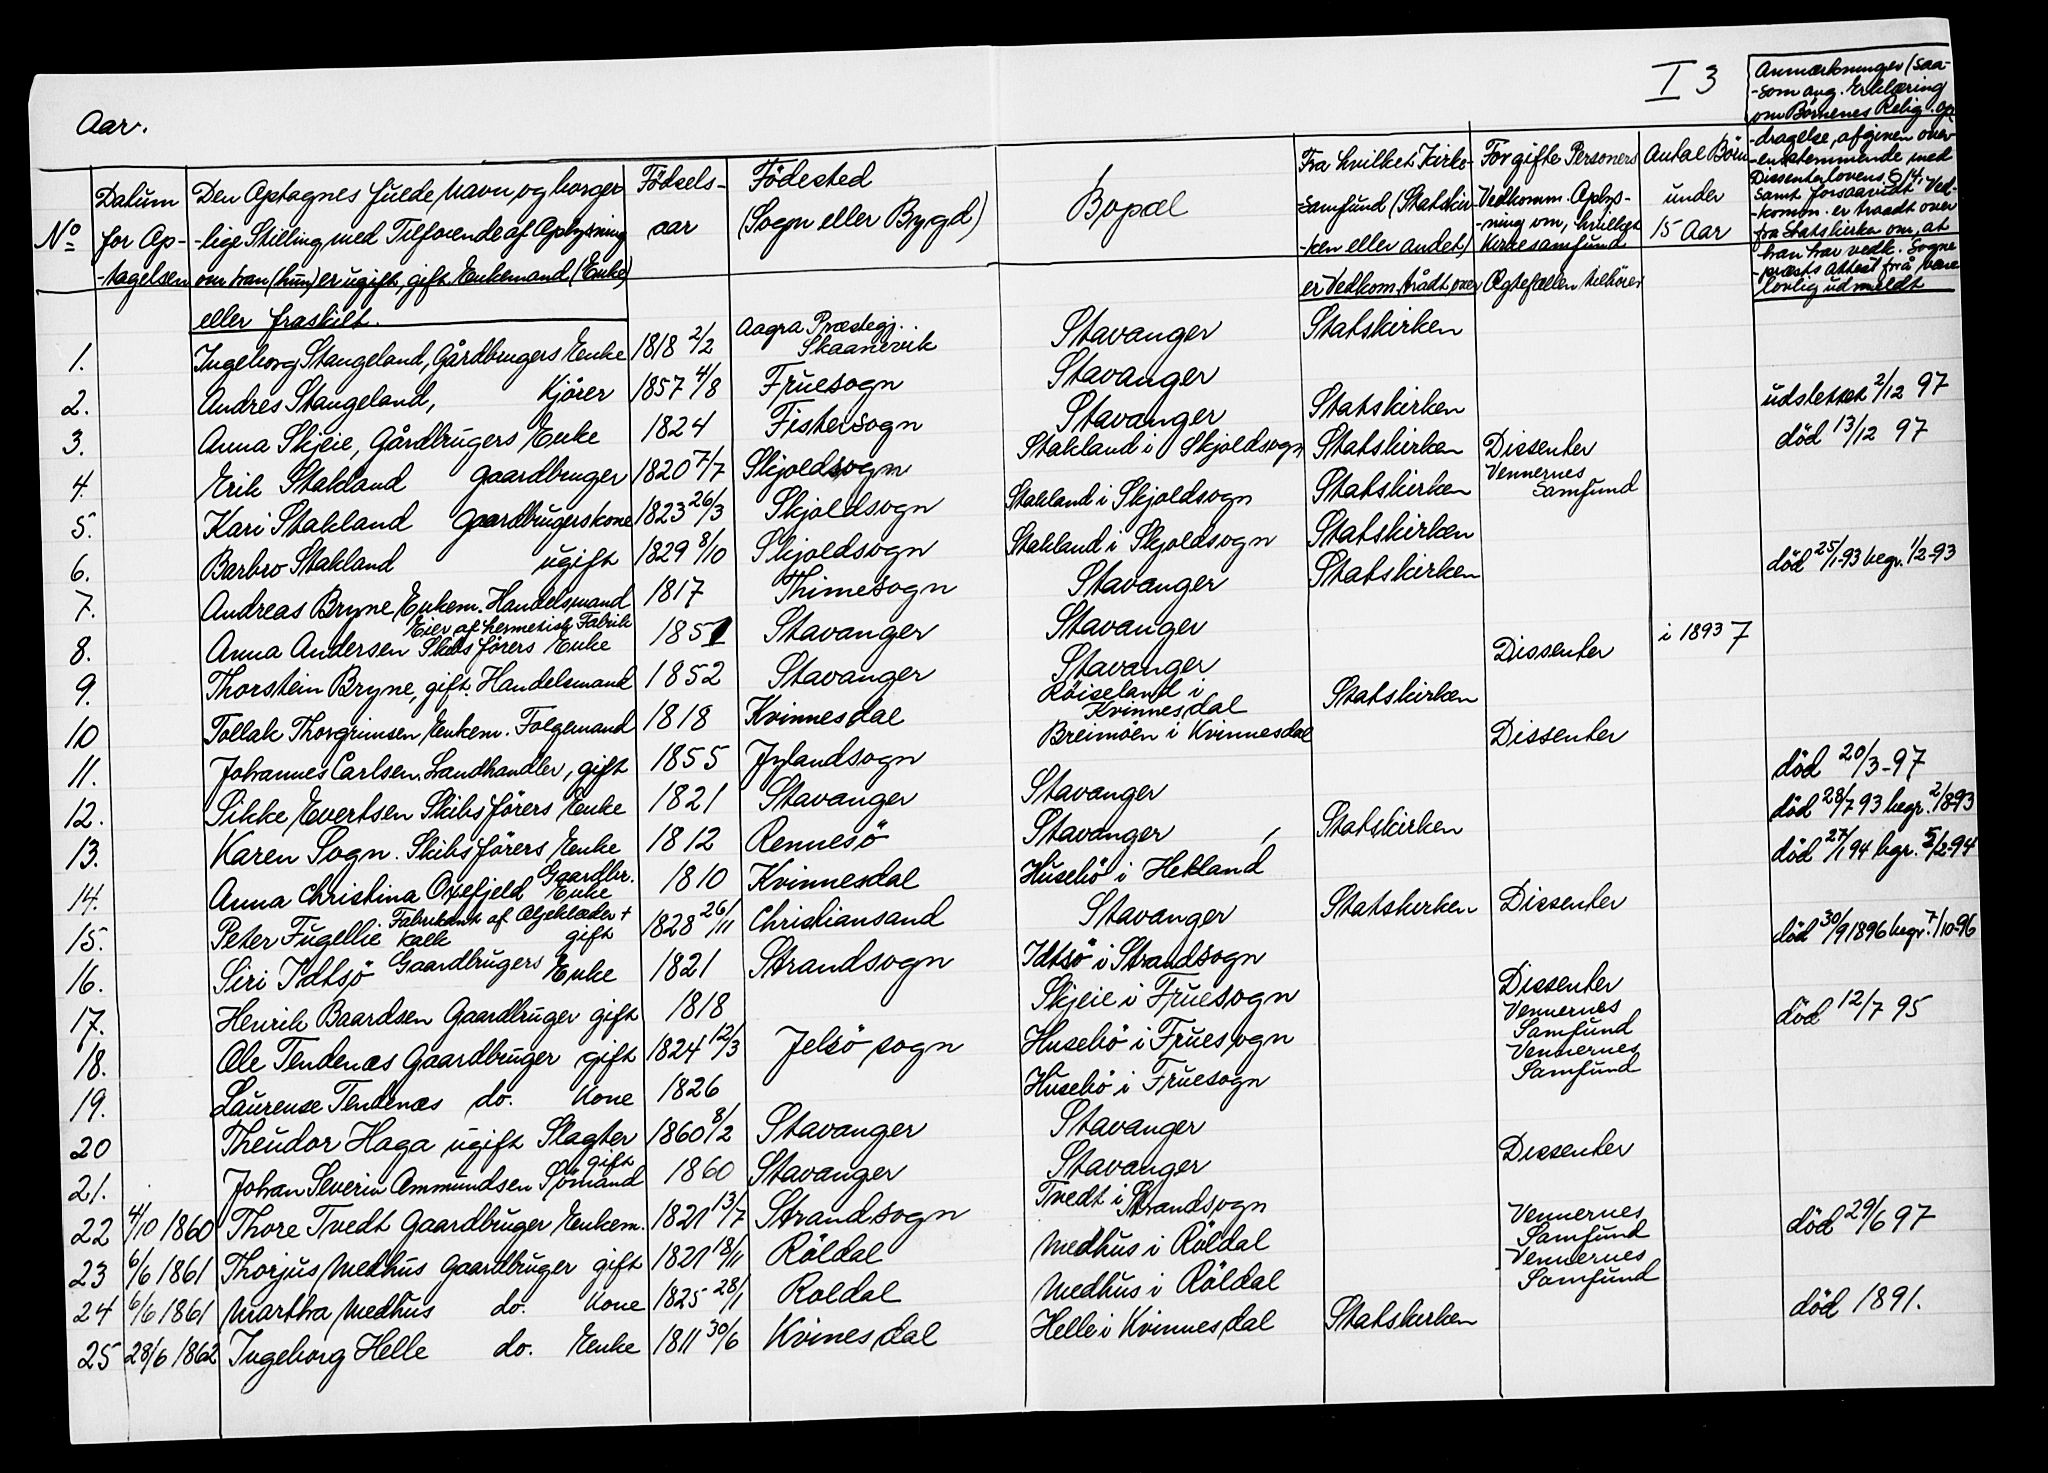 I 3
Aar.
No
Datum for Op- -tagelsen
Den Optagnes fulde Navn og borger- -lige Stilling med Tilføiende af Oplysning om han (hun) er ugift, gift, Enkemand (Enke) eller fraskilt.
Fødsels- aar
Födested (Sogn eller Bygd)
Bopæl
Fra hvilket Kirke- samfund (Statskir- -ken eller andet) er Vedkom. trådt over
For gifte Personers Vedkomm. Oplys- -ning om, hvilket Kirkesamfund Ægtefællen tilhører
Antal Börn under 15 Aar
Anmærkninger (saa- -som ang. Erklæring om Börnenes Relig. Op- -dragelse, afgiven over- -ensstemmende med Dissenterlovens § 14, samt forsaavidt Ved- -komm. er traadt over fra Statskirken om, at han har vedk. Sogne- -præsts Attest for å være lovlig udmeldt
1. Ingeborg Stangeland, Gårdbrugers Enke 1818 2/2 Aagra Præstegj. Skaanevik Stavanger Statskirken
2. Andres Stangeland, Kjörer 1857 4/8 Fruesogn Stavanger udslettet 2/12 97
3. Anna Skjeie, Gårdbrugers Enke 1824 Fistersogn Stavanger Statskirken död 13/12 97
4. Erik Stakland Gaardbruger 1820 7/7 Skjoldsogn Stakland i Skjoldsogn Statskirken Dissenter
5. Kari Stakland Gaardbrugerskone 1823 26/3 Skjoldsogn Stakland i Skjoldsogn Statskirken Vennernes Samfund
6. Barbro Stakland ugift 1829 8/10 Skjoldsogn Stakland i Skjoldsogn Statskirken död 25/1-93 begr. 1/2-93
7. Andreas Bryne, Enkem. Handelsmand 1817 Thimesogn Stavanger Statskirken
8. Anna Andersen Eier af hermetisk Fabrik Skibsförers Enke 1851 Stavanger Stavanger
9. Thorstein Bryne, gift. Handelsmand 1852 Stavanger Stavanger Dissenter i 1893 7
10 Tollak Thorgrimsen, Enkem. Folgemand 1818 Kvinnesdal Röiseland i Kvinnesdal Statskirken
11. Johannes Carlsen, Landhandler, gift 1855 Jylandsogn Breimöen i Kvinnesdal Dissenter
12. Sikke Evertsen Skibsförers Enke 1821 Stavanger Stavanger död 20/3-97
13. Karen Sogn. Skibsförers Enke 1812 Rennesö Stavanger Statskirken död 28/7 93 begr. 2/8-93
14. Anna Christina Oxefjeld Gaardbr. Enke 1810 Kvinnesdal Husebö i Hetland död 27/1 94 bgr. 5/2-94
15. Peter Fugellie Fabrikant af Oljeklæder + Kalk gift 1828 26/11 Christiansand Stavanger Statskirken Dissenter
16. Siri Idtsö Gaardbrugers Enke 1821 Strandsogn Idtsö i Strandsogn död 30/9 1896 begr. 7/10-96
17. Henrik Baardsen Gaardbruger gift 1818 Skjeie i Fruesogn Dissenter
18. Ole Tendenæs Gaardbruger gift 1824 12/3 Jelsö sogn Husebö i Fruesogn Vennernes Samfund död 12/7 95
19. Laurense Tendenæs do. Kone 1826 Husebö i Fruesogn Vennernes Samfund
20 Theudor Haga ugift Slagter 1860 8/2 Stavanger Stavanger
21. Johan Severin Ommundsen gift Sömand 1860 Stavanger Stavanger Dissenter
22 4/10 1860 Thore Tvedt Gaardbruger Enkem. 1821 13/7 Strandsogn Tvedt i Strandsogn
23 6/6 1861 Thorjus Medhus Gaardbruger gift 1821 18/11 Röldal Medhus i Röldal Vennernes Samfund död 29/6 97
24 6/6 1861 Martha Medhus do. Kone 1825 28/1 Roldal Medhus i Röldal Vennernes Samfund
25 28/6 1862 Ingeborg Helle do. Enke 1811 30/6 Kvinesdal Helle i Kvinnesdal Statskirken död 1891.